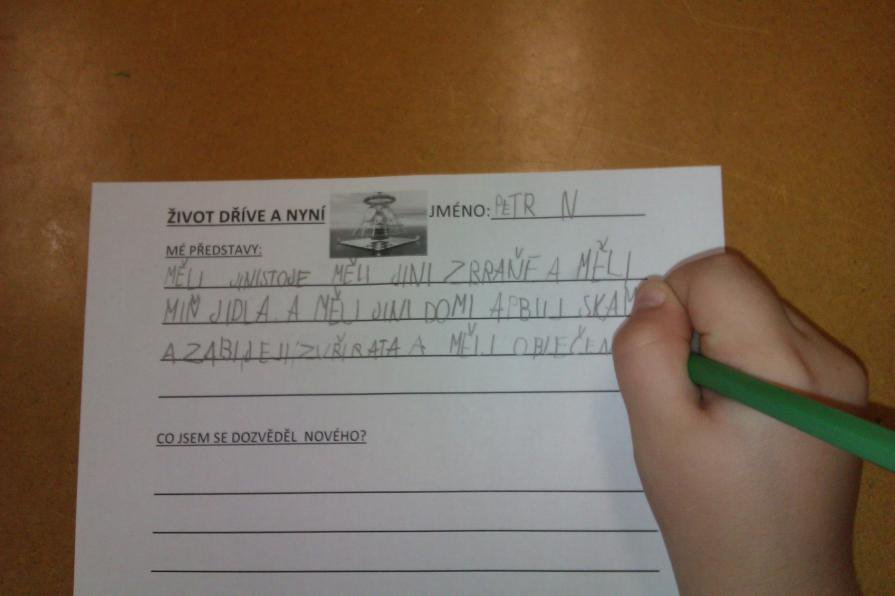 ŽIVOT DŘÍVE A NYNÍ JMÉNO: PETR N
MÉ PŘEDSTAVY:
MĚLI JINISTOJE MĚLI JINI ZBRRAŇE A MĚLI
MIŇ JIDLA. A MĚLI JINI DOMI APBILI SKAM
A ZABIJEJI ZVŘIRATA A MĚLI OBLEČEN
CO JSEM SE DOZVĚDĚL NOVÉHO?